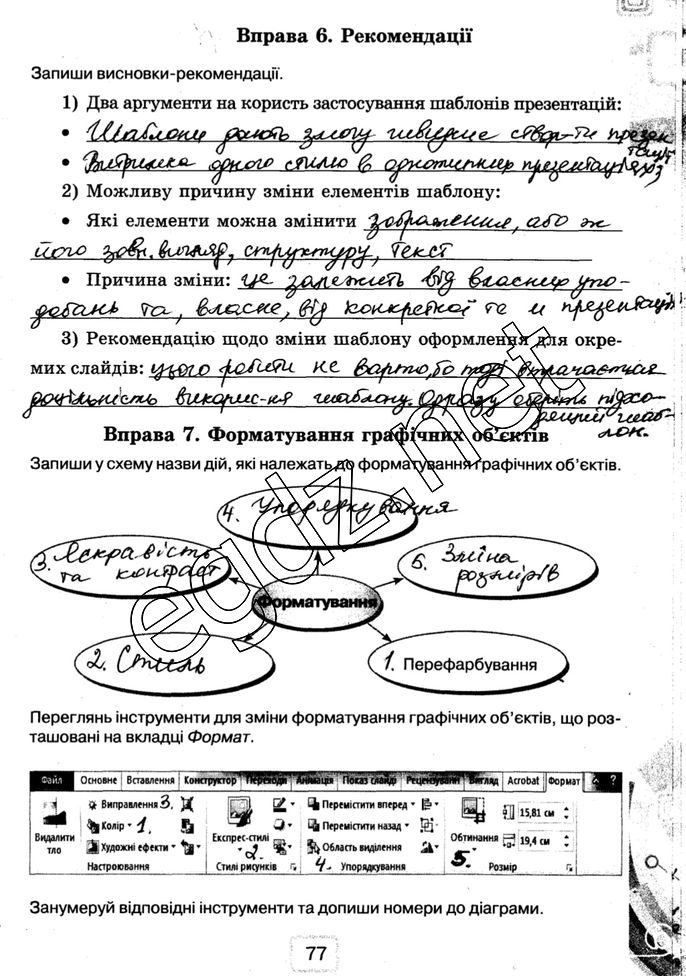 Вправа 6. Рекомендації
Запиши висновки-рекомендації.
1) Два аргументи на користь застосування шаблонів презентацій:
• Шаблони дають змогу швидше створ-ти презен
тації
• Витримка одного стилю в однотипних презентаціях
2) Можливу причину зміни елементів шаблону:
• Які елементи можна змінити зображення, або ж
його зовн. вигляд, структуру, текст
• Причина зміни: це залежить від власних упо-
добань та, власне, від конкретної те и презентації
3) Рекомендацію щодо зміни шаблону оформлення для окре-
мих слайдів: цього робити не варто, бо тоді втрачається
доцільність викорис-ня шаблону. Одразу оберіть підхо-
дящий шаб-
лон.
Вправа 7. Форматування графічних об'єктів
Запиши у схему назви дій, які належать до форматування графічних об'єктів.
4. Упорядкування
3. Яскравість
та контраст
5. Зміна
розмірів
Форматування
2. Стиль
1. Перефарбування
Переглянь інструменти для зміни форматування графічних об'єктів, що роз-
ташовані на вкладці Формат.
Файл Основне Вставлення Конструктор Переходи Анімація Показ слайді Рецензуванн Вигляд Acrobat Формат
Виправлення 3.
Колір 1.
Художні ефекти
Видалити
тло
Настроювання
Експрес-стилі
2.
Стилі рисунків
Перемістити вперед
Перемістити назад
Область виділення
4. Упорядкування
Обтинання
5.
15,81 см
19,4 см
Розмір
Занумеруй відповідні інструменти та допиши номери до діаграми.
77
egdz.net